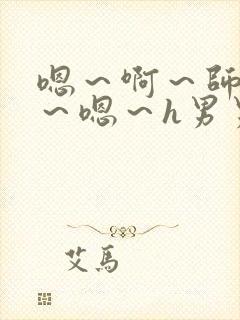 嗯～啊～師
～嗯～h男
艾馬